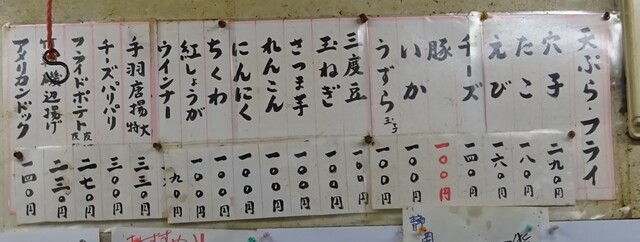 天ぷら・フライ
穴子 二九〇円
たこ 一八〇円
えび 一六〇円
チーズ 一四〇円
豚 一〇〇円
いか 一〇〇円
うずら玉子 一〇〇円
三度豆 一〇〇円
玉ねぎ 一〇〇円
さつま芋 一〇〇円
れんこん 一〇〇円
にんにく 一〇〇円
ちくわ 一〇〇円
紅しょうが 一〇〇円
ウインナー 九〇円
手羽唐揚 特大 三三〇円
チーズパリパリ 三〇〇円
フライドポテト 二七〇円
磯辺揚げ 二三〇円
アメリカンドック 一四〇円